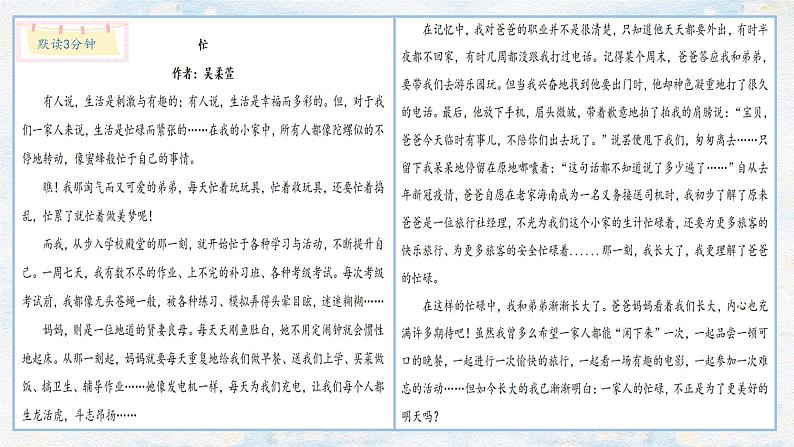 默读3分钟
忙
作者：吴柔萱
有人说，生活是刺激与有趣的；有人说，生活是幸福而多彩的。但，对于我
们一家人来说，生活是忙碌而紧张的……在我的小家中，所有人都像陀螺似的不
停地转动，像蜜蜂般忙于自己的事情。
瞧！我那淘气而又可爱的弟弟，每天忙着玩玩具，忙着收玩具，还要忙着捣
乱，忙累了就忙着做美梦呢！
而我，从步入学校殿堂的那一刻，就开始忙于各种学习与活动，不断提升自
己。一周七天，我有数不尽的作业、上不完的补习班、各种考级考试。每次考级
考试前，我都像无头苍蝇一般，被各种练习、模拟弄得头晕目眩，迷迷糊糊……
妈妈，则是一位地道的贤妻良母。每天天刚鱼肚白，她不用定闹钟就会惯性
地起床。从那一刻起，妈妈就要每天重复地给我们做早餐、送我们上学、买菜做
饭、搞卫生、辅导作业……她像发电机一样，每天为我们充电，让我们每个人都
生龙活虎，斗志昂扬……
在记忆中，我对爸爸的职业并不是很清楚，只知道他天天都要外出，有时半
夜都不回家，有时几周都没跟我打过电话。记得某个周末，爸爸答应我和弟弟，
要带我们去游乐园玩。但当我兴奋地找到他要出门时，他却神色凝重地打了很久
的电话。最后，他放下手机，眉头微皱，带着歉意地拍了拍我的肩膀说：“宝贝，
爸爸今天临时有事儿，不陪你们出去玩了。”说罢便甩下我们，匆匆离去……只
留下我呆呆地停留在原地嘟囔着：“这句话都不知道说了多少遍了……”自从去
年新冠疫情，爸爸自愿在老家海南成为一名义务接送司机时，我初步了解了原来
爸爸是一位旅行社经理，不光为我们这个小家的生计忙碌着，还要为更多旅客的
快乐旅行、为更多旅客的安全忙碌着......那一刻，我长大了，我更理解了爸爸
的忙碌。
在这样的忙碌中，我和弟弟渐渐长大了。爸爸妈妈看着我们长大，内心也充
满许多期待吧！虽然我曾多么希望一家人都能“闲下来”一次，一起品尝一顿可
口的晚餐，一起进行一次愉快的旅行，一起看一场有趣的电影，一起参加一次难
忘的活动……但如今长大的我已渐渐明白：一家人的忙碌，不正是为了更美好的
明天吗？